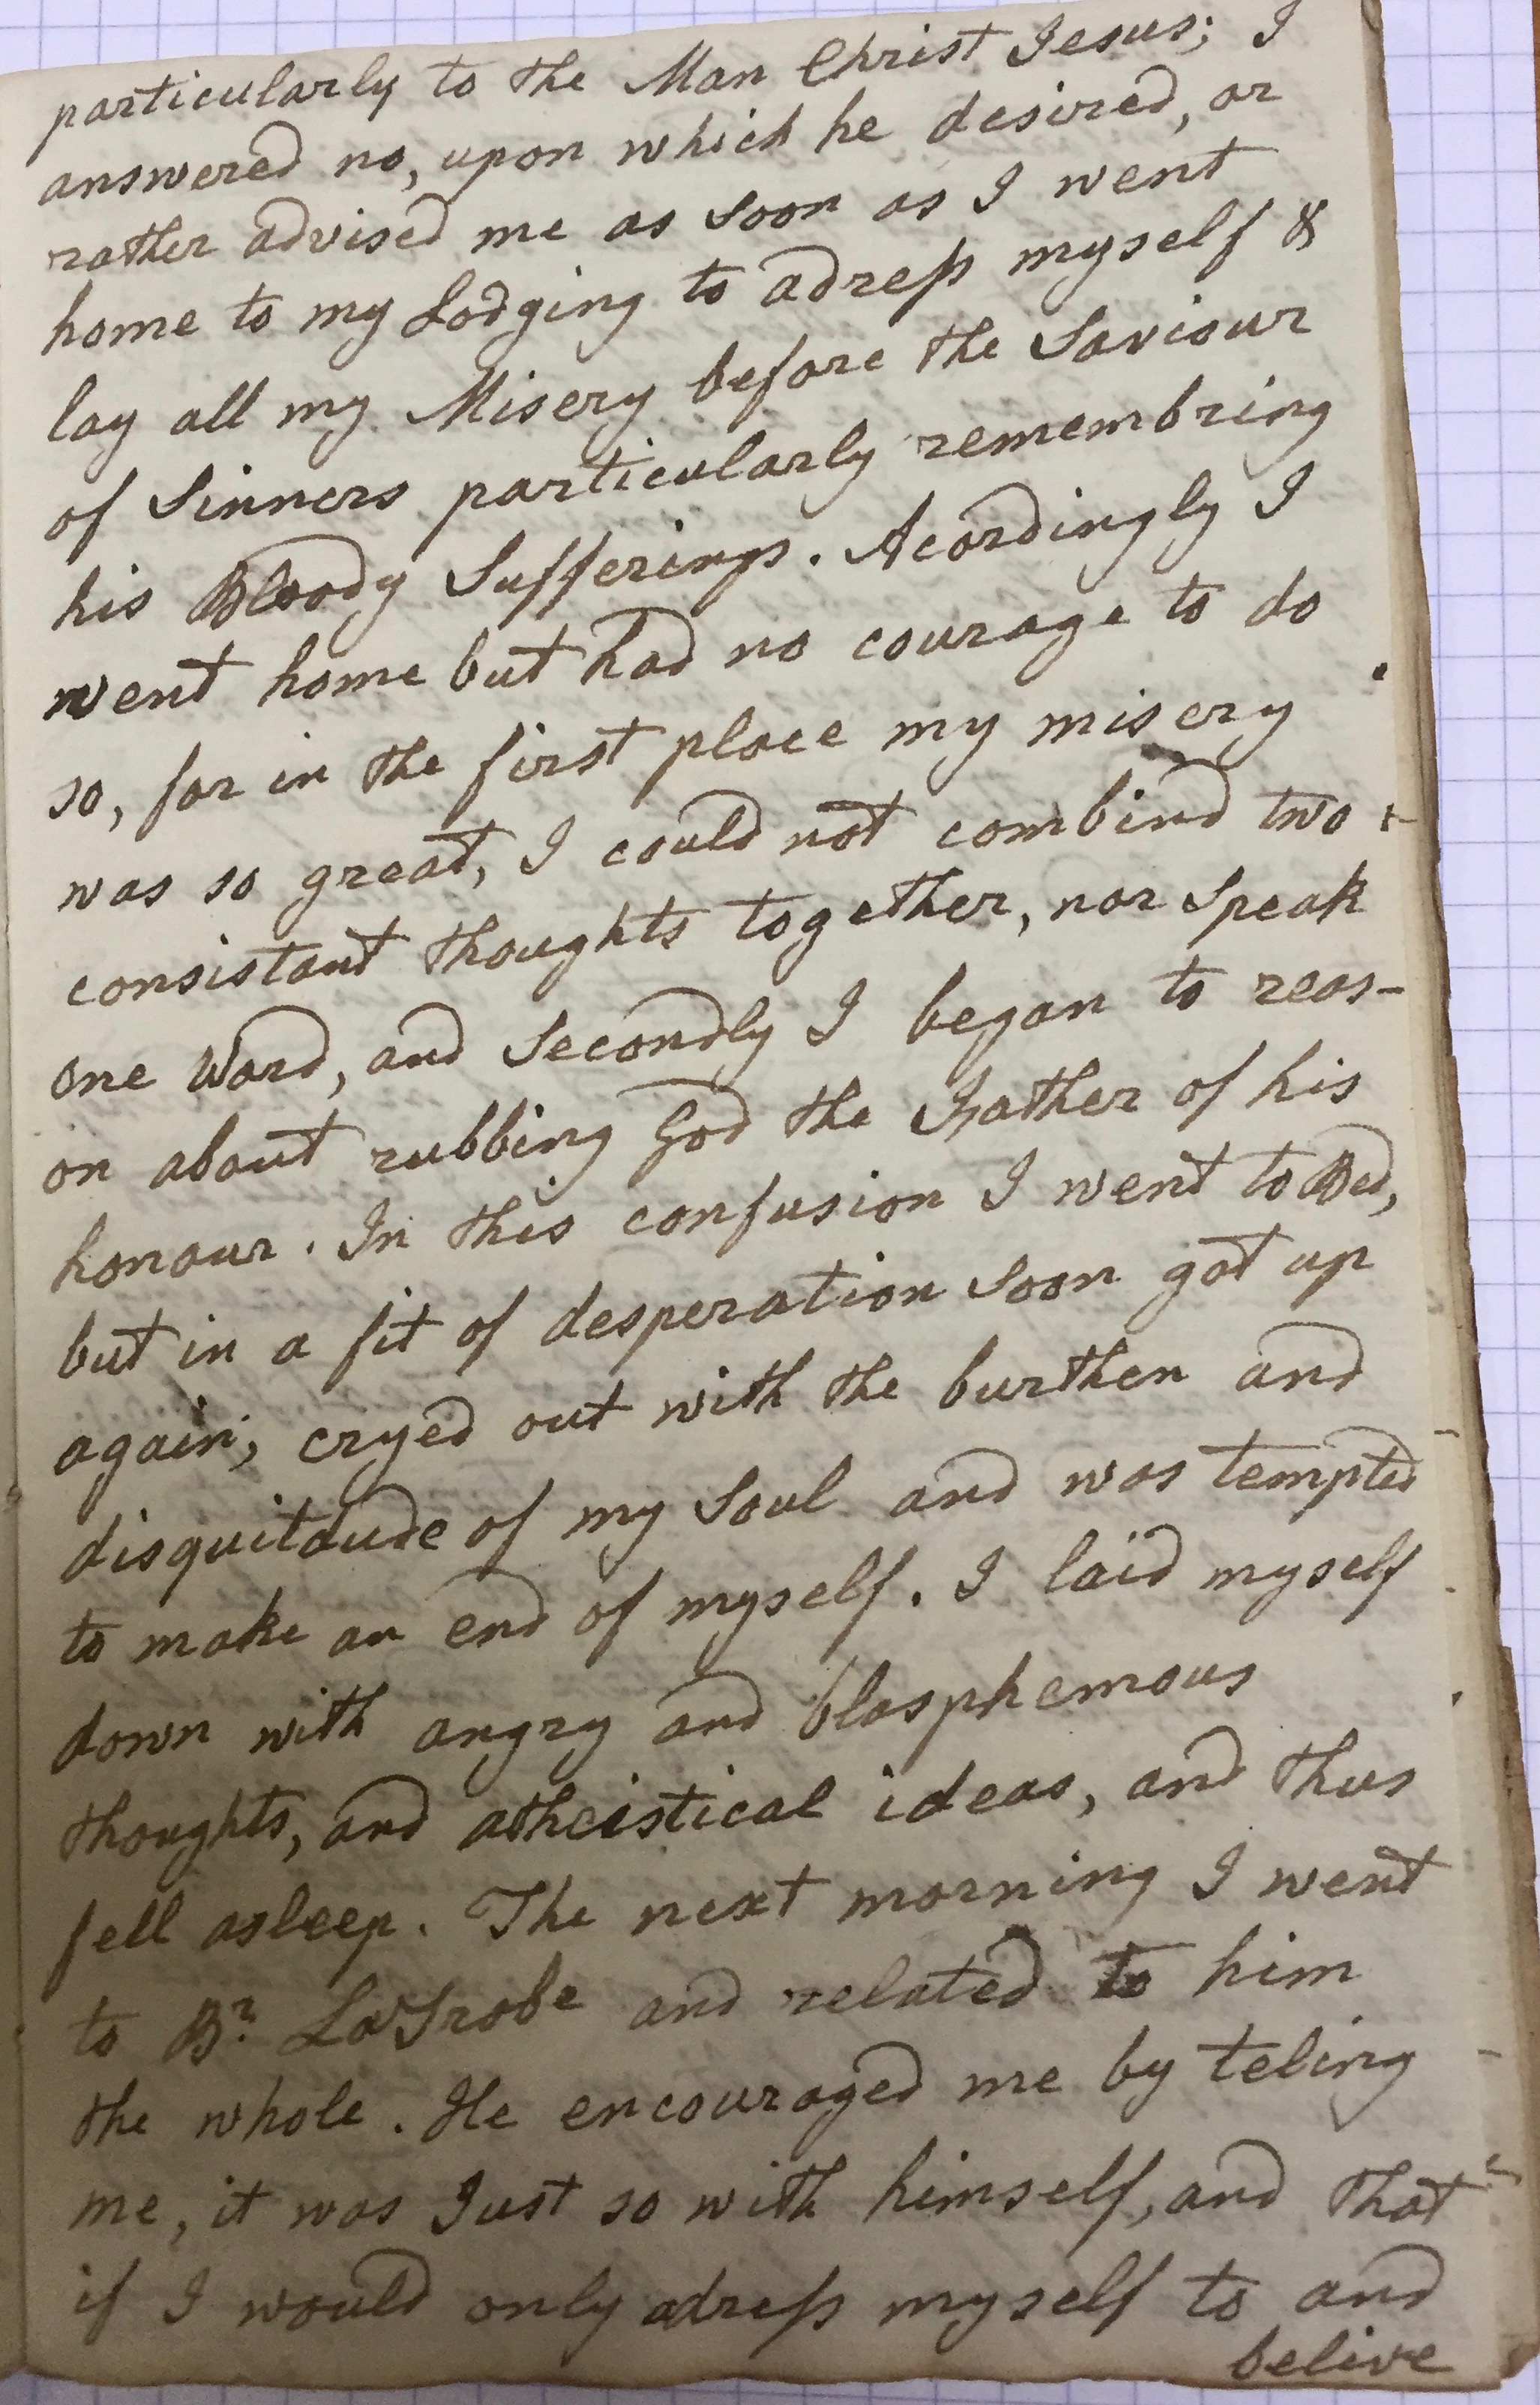 particularly to the Man Christ Jesus; I
answered no, upon which he desired, or
rather advised me as soon as I went
home to my Lodging to adress myself &
lay all my Misery before the Saviour
of Sinners particularly remembring
his Bloody Sufferings. Acordingly I
went home but had no courage to do
so, for in the first place my misery
was so great, I could not combind two
consistant thoughts together, nor speak
one Word, and Secondly I began to reas-
on about rubbing God the Father of his
honour. In this confusion I went to Bed,
but in a fit of desperation soon got up
again, cryed out with the burthen and
disquitdude of my Soul and was tempted
to make an end of myself. I laid myself
down with angry and blasphemous
thoughts, and atheistical ideas, and thus
fell asleep. The next morning I went
to Br. LaTrobe and related to him
the whole. He encouraged me by teling
me, it was Just so with himself, and that
if I would only adress myself to and
belive